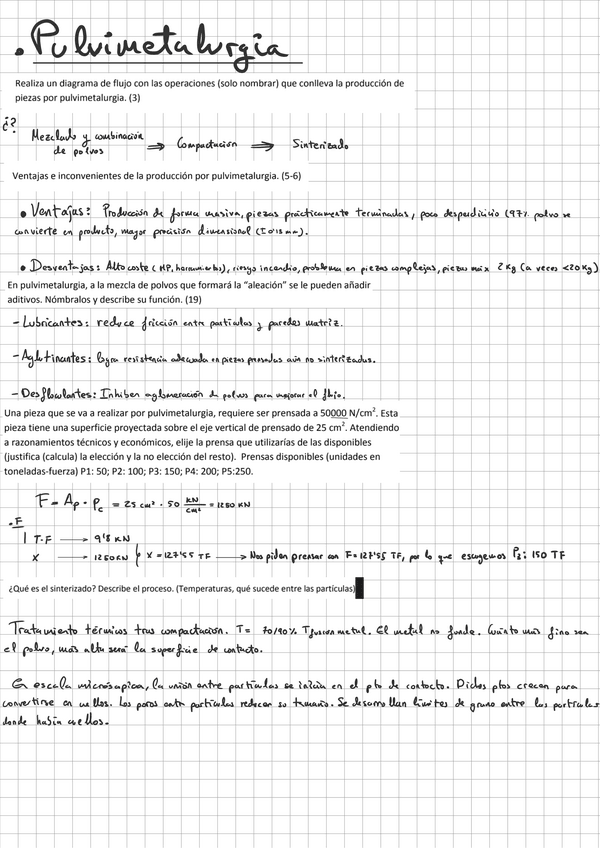 • Pulvimetalurgia
Realiza un diagrama de flujo con las operaciones (solo nombrar) que conlleva la producción de
piezas por pulvimetalurgia. (3)
¿?
Mezclado y combinación
de polvos ⇒ Compactación ⇒ Sinterizado
Ventajas e inconvenientes de la producción por pulvimetalurgia. (5-6)
• Ventajas: Producción de forma masiva, piezas prácticamente terminadas, poco desperdicio (97% polvo se
convierte en producto, mayor precisión dimensional (± 0'13 mm).
• Desventajas: Alto coste (MP, herramientas), riesgo incendio, problema en piezas complejas, piezas max 2 Kg (a veces <20 Kg)
En pulvimetalurgia, a la mezcla de polvos que formará la "aleación" se le pueden añadir
aditivos. Nómbralos y describe su función. (19)
- Lubricantes: reduce fricción entre partículas y paredes matriz.
- Aglutinantes: logra resistencia adecuada en piezas prensadas aún no sinterizadas.
- Desfloculantes: Inhiben aglomeración de polvos para mejorar el flujo.
Una pieza que se va a realizar por pulvimetalurgia, requiere ser prensada a 50000 N/cm². Esta
pieza tiene una superficie proyectada sobre el eje vertical de prensado de 25 cm². Atendiendo
a razonamientos técnicos y económicos, elije la prensa que utilizarías de las disponibles
(justifica (calcula) la elección y la no elección del resto). Prensas disponibles (unidades en
toneladas-fuerza) P1: 50; P2: 100; P3: 150; P4: 200; P5:250.
F = Ap · Pc = 25 cm² · 50 KN/cm² = 1250 KN
- F
1 T·F → 9'8 KN
X → 1250 KN } X = 127'55 TF → Nos piden prensar con F = 127'55 TF, por lo que escogemos P3: 150 TF
¿Qué es el sinterizado? Describe el proceso. (Temperaturas, qué sucede entre las partículas)
Tratamiento térmicos tras compactación. T = 70/90% Tfusión metal. El metal no funde. Cuánto más fino sea
el polvo, más alta será la superficie de contacto.
A escala microscópica, la unión entre partículas se inicia en el pto de contacto. Dichos ptos crecen para
convertirse en cuellos. Los poros entre partículas reducen su tamaño. Se desarrollan límites de grano entre las partículas
donde había cuellos.